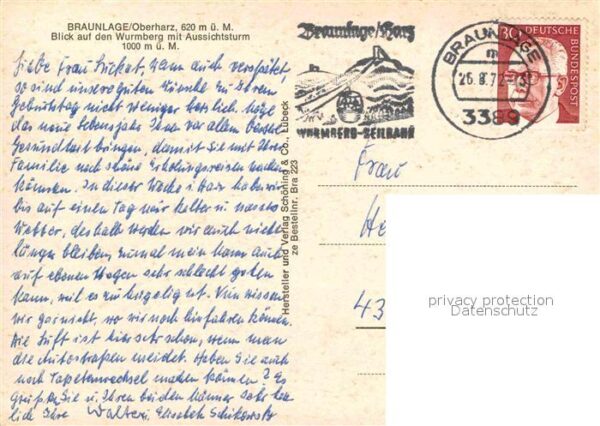 BRAUNLAGE/Oberharz, 620 m ü. M.
Blick auf den Wurmberg mit Aussichtsturm
1000 m ü. M.
Liebe Frau Prickat, wenn auch verspätet,
so sind unsere guten Wünsche zu Ihrem
Geburtstag nicht weniger herzlich. Möge
das neue Lebensjahr Ihnen vor allem beste
Gesundheit bringen, damit Sie mit Ihrer
Familie noch schöne Erholungsreisen machen
können. In dieser Woche i. Harz haben wir
bis auf einen Tag nur kaltes u. nasses
Wetter, deshalb werden wir auch nicht
länger bleiben, zumal mein Mann auch
auf ebenen Wegen sehr schlecht gehen
kann, weil es zu hügelig ist. Nun wissen
wir gar nicht, wo wir noch hinfahren können.
Die Luft ist hier sehr schön, wenn man
die Autostraßen meidet. Haben Sie auch
noch Tapetenwechsel machen können? Es
grüßen Sie u. Ihren beiden Männer sehr herz-
lich Ihre Walter u. Elisabeth
Hersteller und Verlag Schöning & Co., Lübeck
ze Bestellnr. Bra 223
Braunlage/Harz
WURMBERG-SEILBAHN
BRAUNLAGE
26.8.72
3389
30
DEUTSCHE
BUNDESPOST
Frau
He
43
privacy protection
Datenschutz